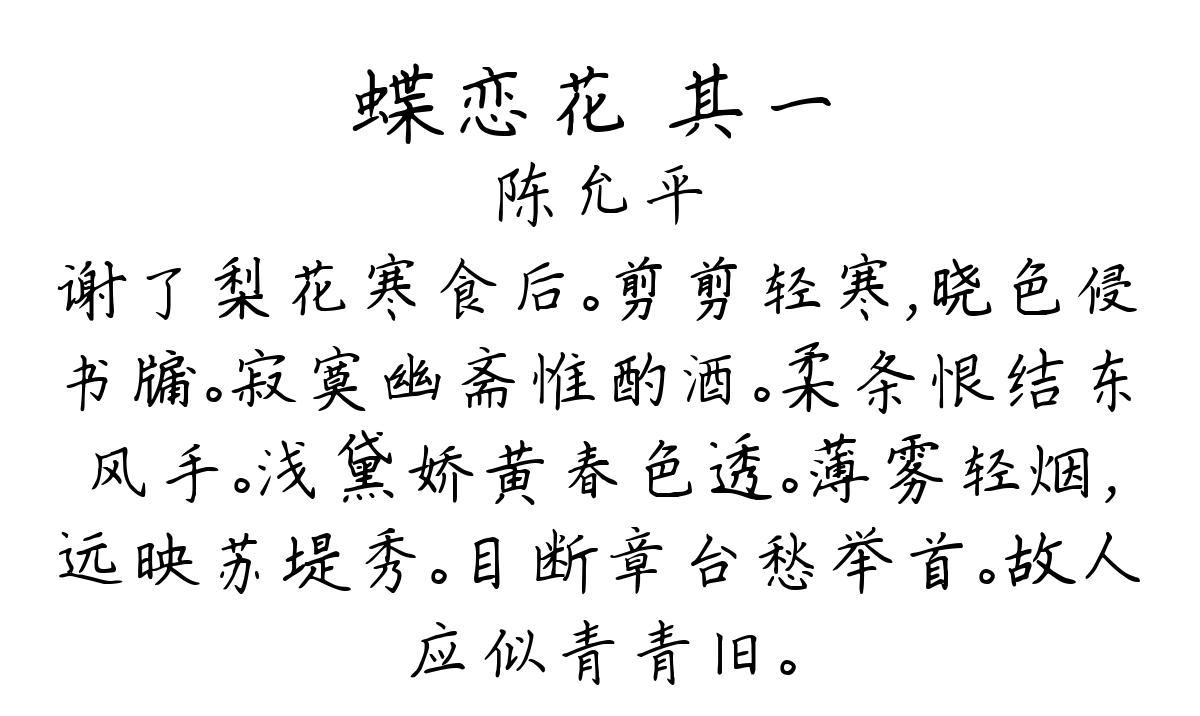 蝶恋花 其一
陈允平
谢了梨花寒食后。剪剪轻寒,晓色侵
书牖。寂寞幽斋惟酌酒。柔条恨结东
风手。浅黛娇黄春色透。薄雾轻烟,
远映苏堤秀。目断章台愁举首。故人
应似青青旧。